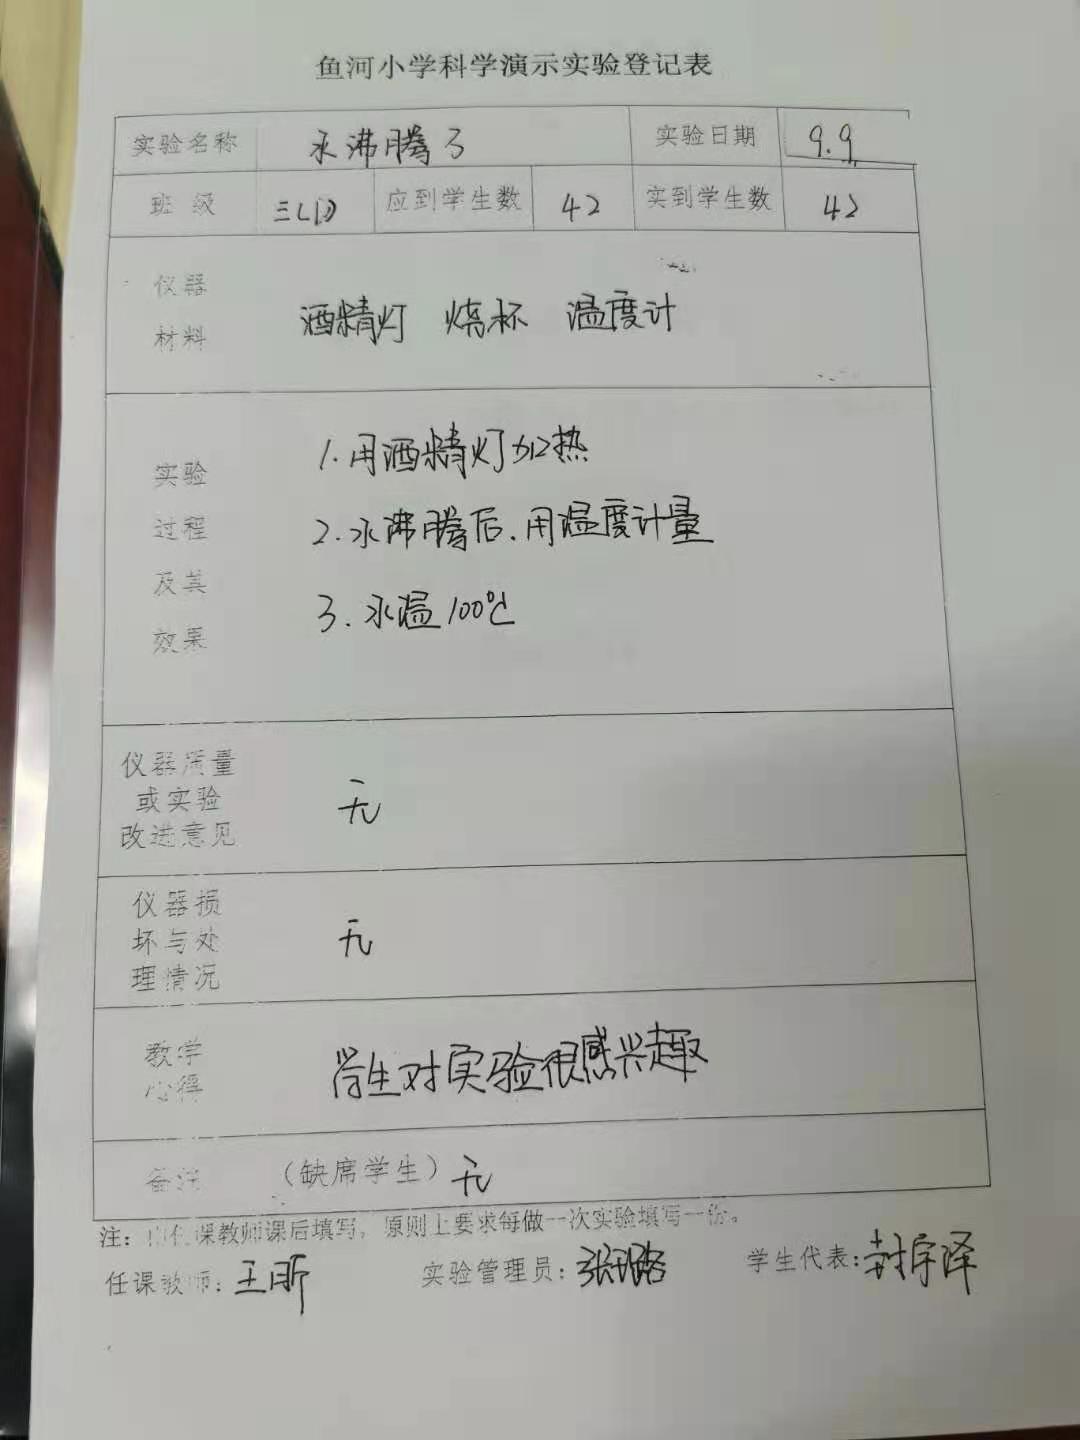 鱼河小学科学演示实验登记表
实验名称 水沸腾了 实验日期 9.9
班级 三(1) 应到学生数 42 实到学生数 42
仪器
材料
酒精灯 烧杯 温度计
实验
过程
及其
效果
1.用酒精灯加热
2.水沸腾后.用温度计量
3.水温100℃
仪器质量
或实验
改进意见
无
仪器损
坏与处
理情况
无
教学
心得
学生对实验很感兴趣
备注 (缺席学生) 无
注: 由任课教师课后填写, 原则上要求每做一次实验填写一份。
任课教师: 王昕 实验管理员: 张璐 学生代表: 封宇泽